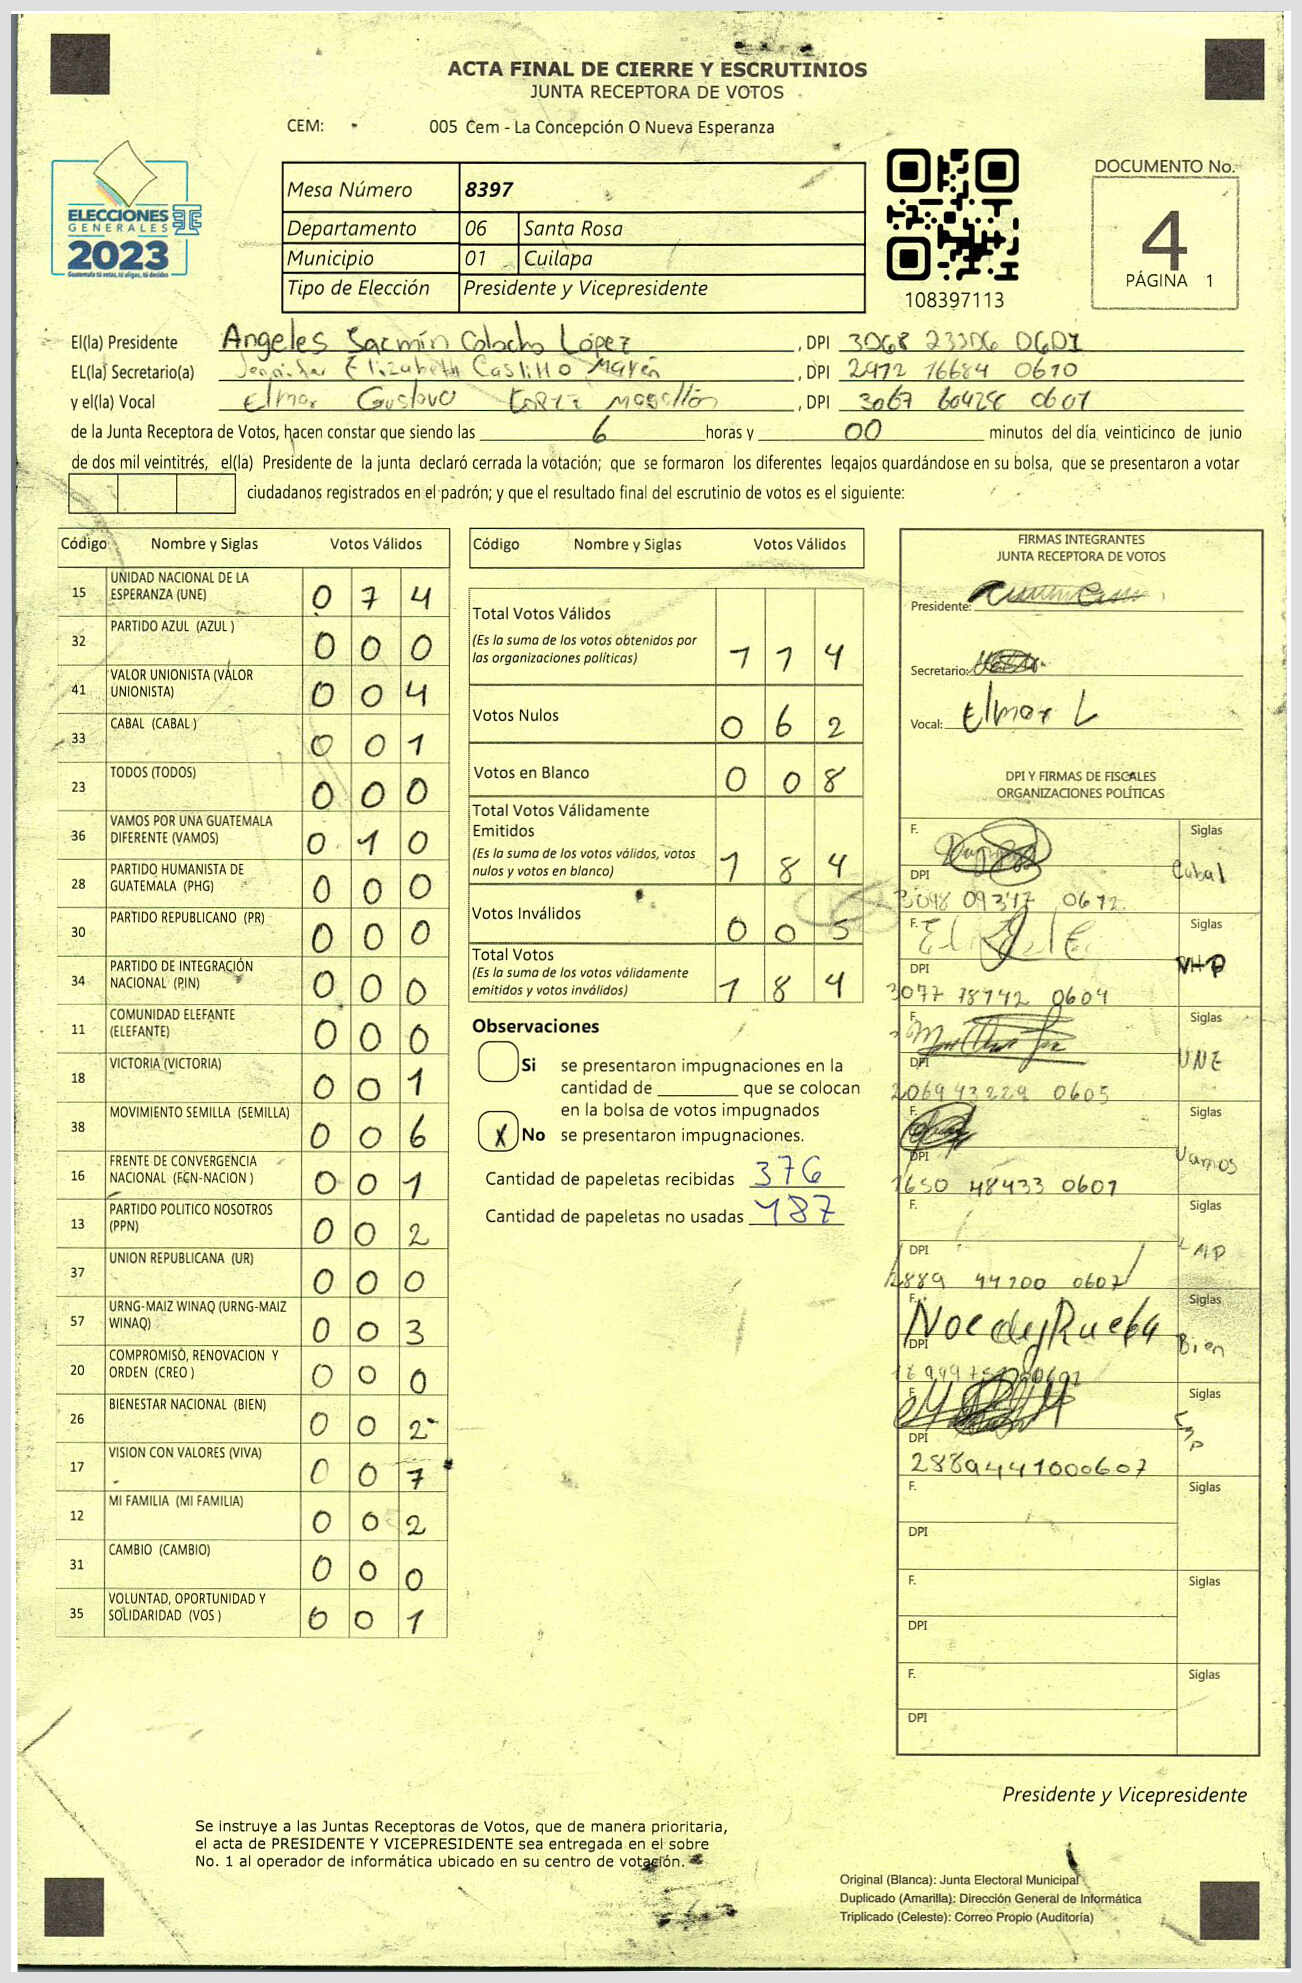 ACTA FINAL DE CIERRE Y ESCRUTINIOS
JUNTA RECEPTORA DE VOTOS
CEM: 005 Cem - La Concepción O Nueva Esperanza
ELECCIONES
GENERALES
2023
Guatemala tú votas, tú eliges, tú decides
Mesa Número 8397
Departamento 06 Santa Rosa
Municipio 01 Cuilapa
Tipo de Elección Presidente y Vicepresidente
108397113
DOCUMENTO No.
4
PÁGINA 1
El(la) Presidente Angeles López , DPI 3068 23306 0601
EL(la) Secretario(a) Jennifer Elizabeth Castillo , DPI 2972 16684 0610
y el(la) Vocal Elmar Gustavo , DPI 3067 60428 0601
de la Junta Receptora de Votos, hacen constar que siendo las 6 horas y 00 minutos del día veinticinco de junio
de dos mil veintitrés, el(la) Presidente de la junta declaró cerrada la votación; que se formaron los diferentes legajos guardándose en su bolsa, que se presentaron a votar
ciudadanos registrados en el padrón; y que el resultado final del escrutinio de votos es el siguiente:
Código Nombre y Siglas Votos Válidos
15 UNIDAD NACIONAL DE LA ESPERANZA (UNE) 0 7 4
32 PARTIDO AZUL (AZUL ) 0 0 0
41 VALOR UNIONISTA (VALOR UNIONISTA) 0 0 4
33 CABAL (CABAL ) 0 0 1
23 TODOS (TODOS) 0 0 0
36 VAMOS POR UNA GUATEMALA DIFERENTE (VAMOS) 0 1 0
28 PARTIDO HUMANISTA DE GUATEMALA (PHG) 0 0 0
30 PARTIDO REPUBLICANO (PR) 0 0 0
34 PARTIDO DE INTEGRACIÓN NACIONAL (PIN) 0 0 0
11 COMUNIDAD ELEFANTE (ELEFANTE) 0 0 0
18 VICTORIA (VICTORIA) 0 0 1
38 MOVIMIENTO SEMILLA (SEMILLA) 0 0 6
16 FRENTE DE CONVERGENCIA NACIONAL (FCN-NACION ) 0 0 1
13 PARTIDO POLITICO NOSOTROS (PPN) 0 0 2
37 UNION REPUBLICANA (UR) 0 0 0
57 URNG-MAIZ WINAQ (URNG-MAIZ WINAQ) 0 0 3
20 COMPROMISO, RENOVACION Y ORDEN (CREO ) 0 0 0
26 BIENESTAR NACIONAL (BIEN) 0 0 2
17 VISION CON VALORES (VIVA) 0 0 7
12 MI FAMILIA (MI FAMILIA) 0 0 2
31 CAMBIO (CAMBIO) 0 0 0
35 VOLUNTAD, OPORTUNIDAD Y SOLIDARIDAD (VOS ) 0 0 1
Código Nombre y Siglas Votos Válidos
Total Votos Válidos
(Es la suma de los votos obtenidos por
las organizaciones políticas) 1 1 4
Votos Nulos 0 6 2
Votos en Blanco 0 0 8
Total Votos Válidamente
Emitidos
(Es la suma de los votos válidos, votos
nulos y votos en blanco) 1 8 4
Votos Inválidos 0 0 5
Total Votos
(Es la suma de los votos válidamente
emitidos y votos inválidos) 1 8 4
Observaciones
Si se presentaron impugnaciones en la
cantidad de que se colocan
en la bolsa de votos impugnados
X No se presentaron impugnaciones.
Cantidad de papeletas recibidas 376
Cantidad de papeletas no usadas 187
FIRMAS INTEGRANTES
JUNTA RECEPTORA DE VOTOS
Presidente:
Secretario:
Vocal: Elmar L
DPI Y FIRMAS DE FISCALES
ORGANIZACIONES POLÍTICAS
F. Siglas
DPI Cabal
3098 09347 0612
F. Siglas
DPI
3077 78742 0604
F. Siglas
DPI UNE
2069 43229 0605
F. Siglas
DPI Vamos
1650 48433 0601
F. Siglas
DPI
2889 44100 0607
F. Siglas
DPI Bien
F. Siglas
DPI
2889441000607
F. Siglas
DPI
F. Siglas
DPI
F. Siglas
DPI
Presidente y Vicepresidente
Se instruye a las Juntas Receptoras de Votos, que de manera prioritaria,
el acta de PRESIDENTE Y VICEPRESIDENTE sea entregada en el sobre
No. 1 al operador de informática ubicado en su centro de votación.
Original (Blanca): Junta Electoral Municipal
Duplicado (Amarilla): Dirección General de Informática
Triplicado (Celeste): Correo Propio (Auditoría)